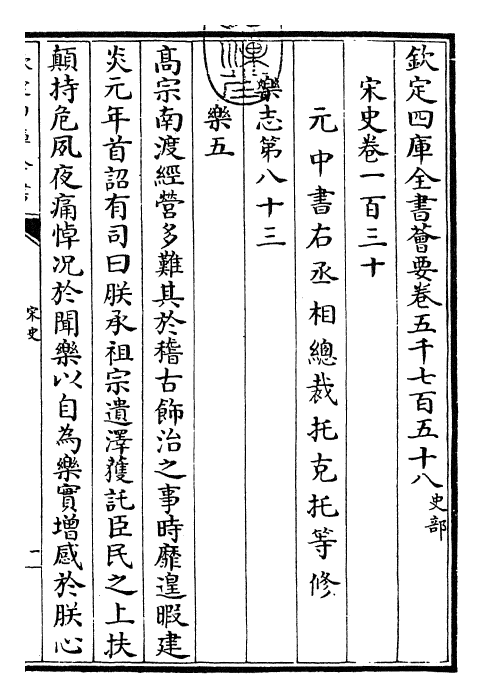 欽定四庫全書薈要卷五千七百五十八史部
宋史卷一百三十
元中書右丞相總裁托克托等修
樂志第八十三
樂五
髙宗南渡經營多難其於稽古飾治之事時靡遑暇建
炎元年首詔有司曰朕承祖宗遺澤獲託臣民之上扶
顛持危夙夜痛悼况於聞樂以自為樂實增感於朕心
宋史